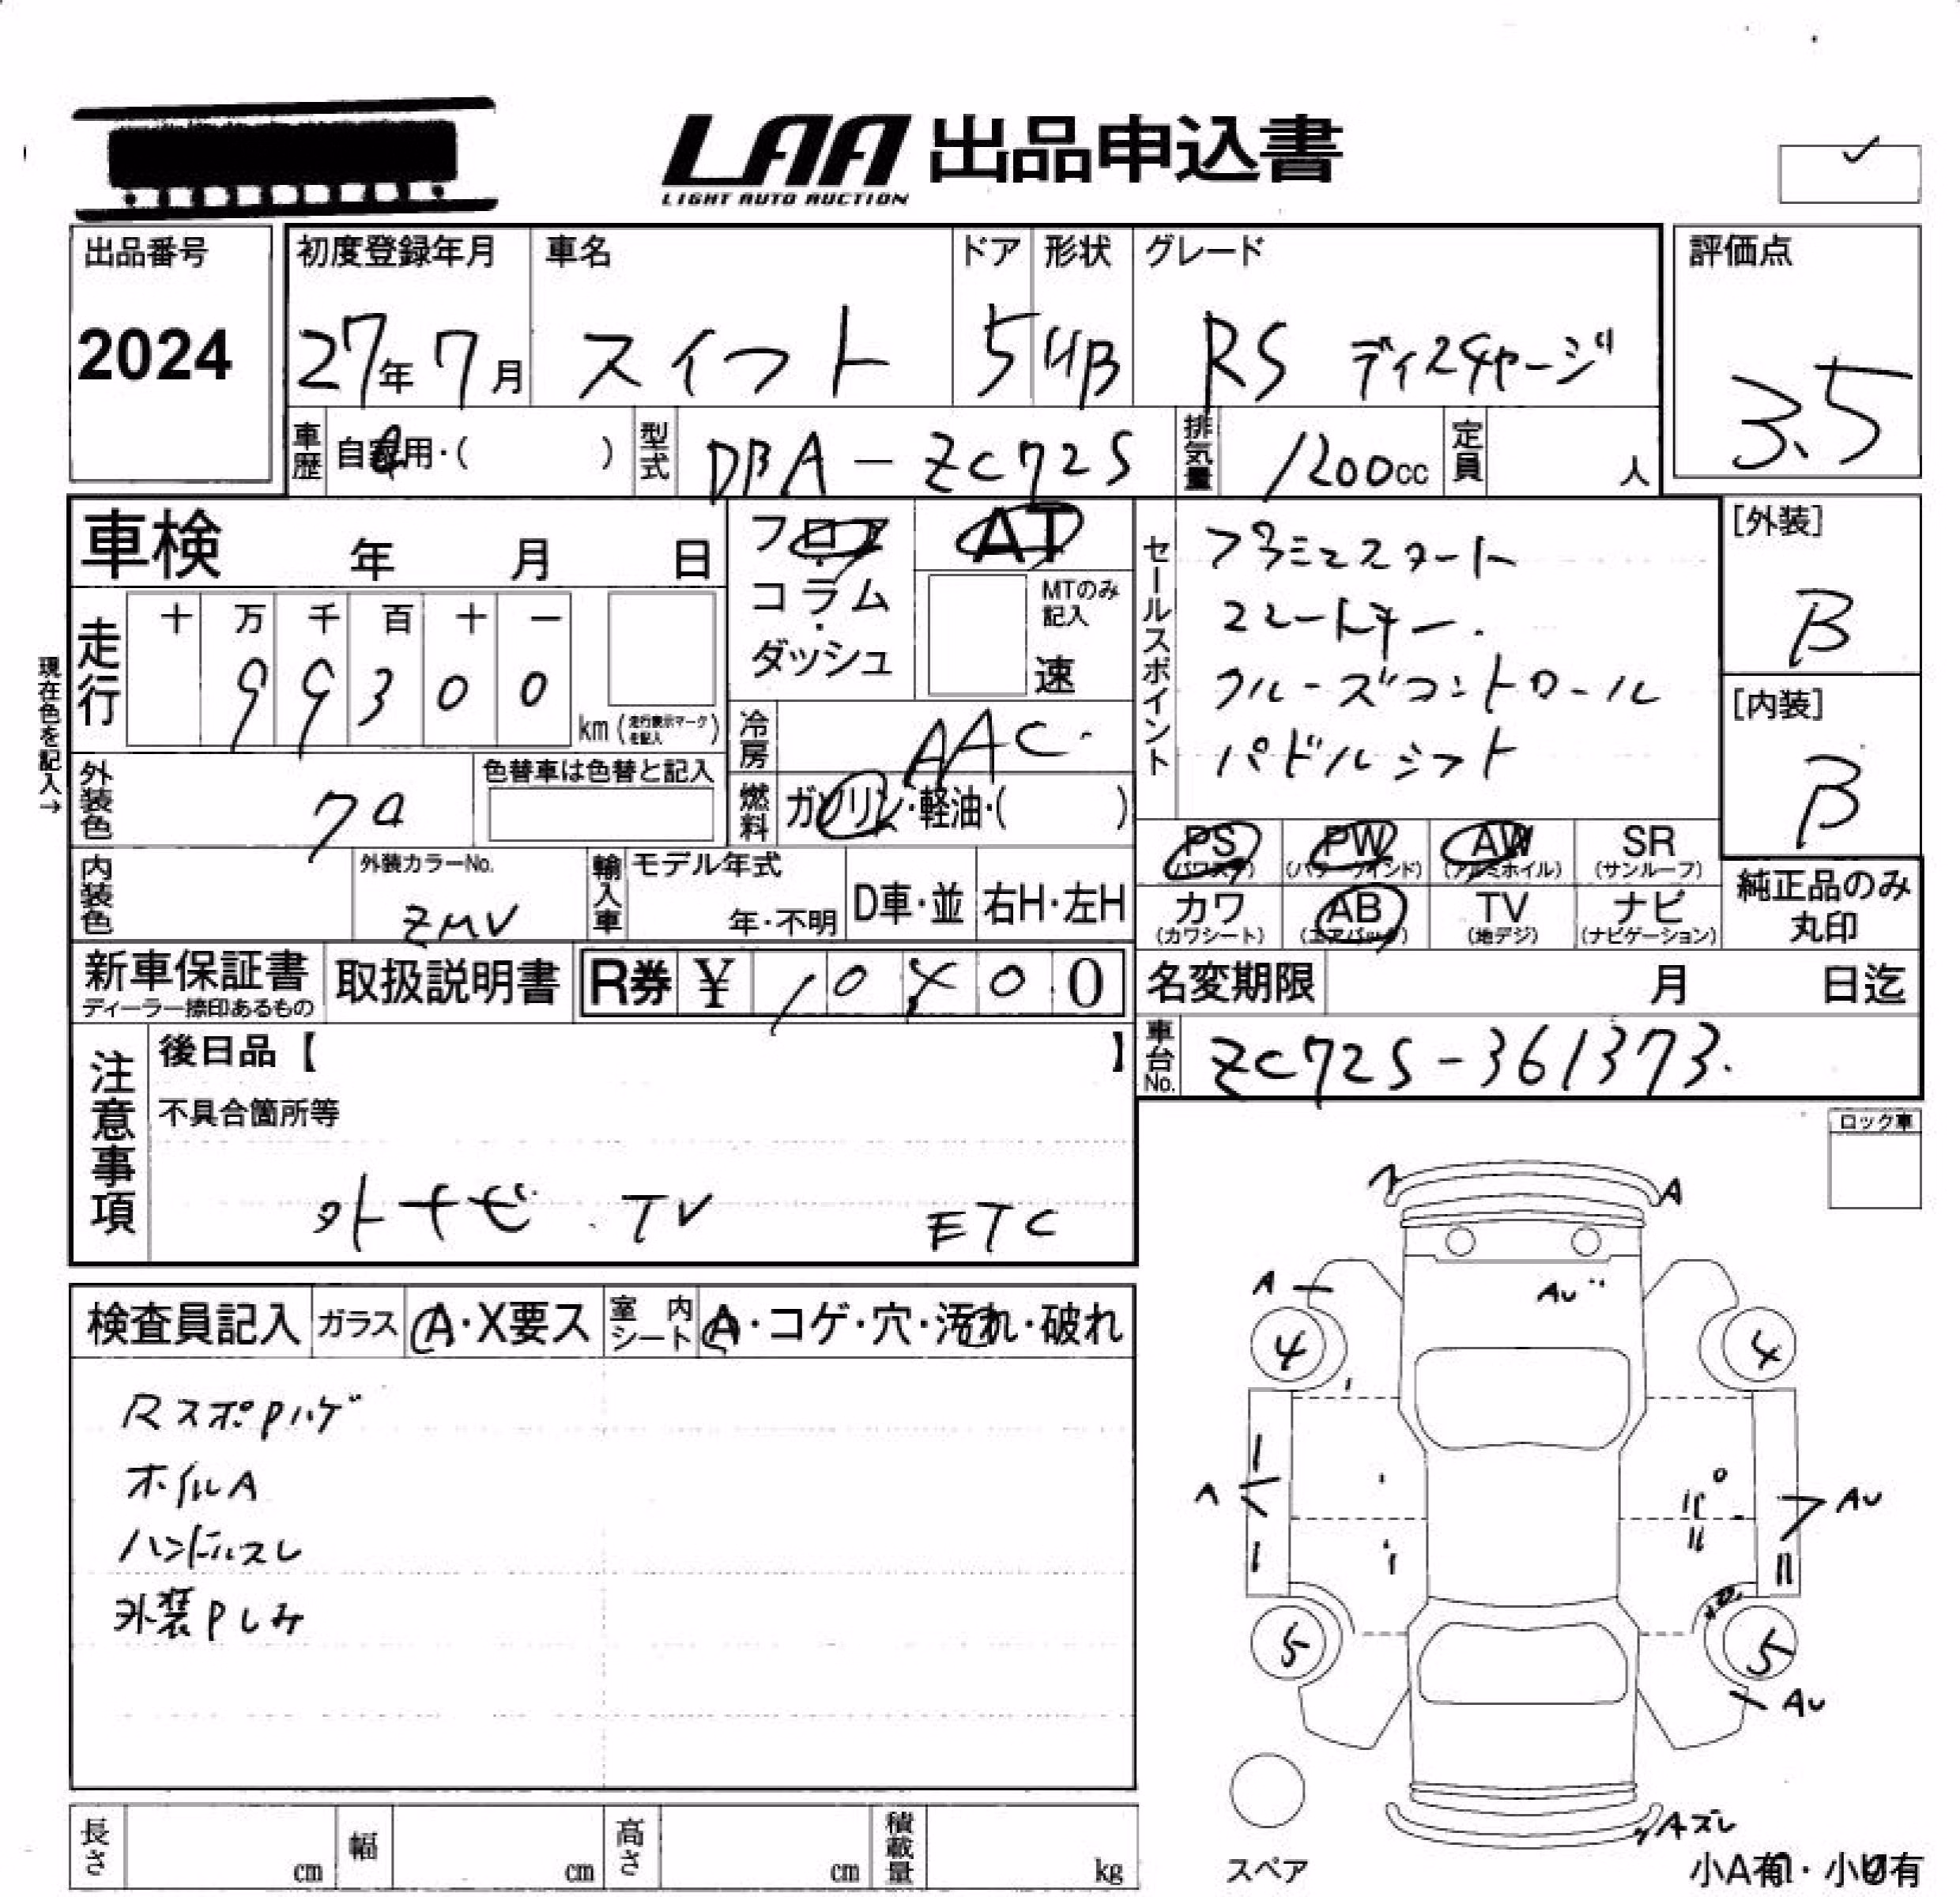 LAA 出品申込書
LIGHT AUTO AUCTION
出品番号
2024
初度登録年月
27年 7月
車名
スイフト
ドア
5
形状
HB
グレード
RS ディスチャージ
評価点
3.5
車歴
自家用・( )
型式
DBA-ZC72S
排気量
1200cc
定員
人
車検 年 月 日
フロア・コラム・ダッシュ
AT
MTのみ記入
速
セールスポイント
プッシュスタート
スマートキー.
クルーズコントロール
パドルシフト
[外装]
B
[内装]
B
現在色を記入→
走行
十 万 千 百 十 一
9 9 3 0 0
km (走行表示マークを記入)
冷房
AAC.
外装色
色替車は色替と記入
燃料
ガソリン・軽油・( )
PS (パワステ)
PW (パワーウインド)
AW (アルミホイル)
SR (サンルーフ)
カワ (カワシート)
AB (エアバッグ)
TV (地デジ)
ナビ (ナビゲーション)
純正品のみ丸印
内装色
外装カラーNo.
ZMV
輸入車
モデル年式
年・不明
D車・並
右H・左H
新車保証書
ディーラー捺印あるもの
取扱説明書
R券 ¥
名変期限 月 日迄
車台No.
ZC72S-361373.
注意事項
後日品【 】
不具合箇所等
外ナビ TV ETC
ロック車
検査員記入
ガラス
A・X要ス
室内シート
A・コゲ・穴・汚れ・破れ
RスポPハゲ
ホイルA
ハンドルスレ
外装Pしみ
A
A
AU
4
4
A
AU
5
5
AU
Aズレ
スペア
小A有・小U有
長さ cm
幅 cm
高さ cm
積載量 kg